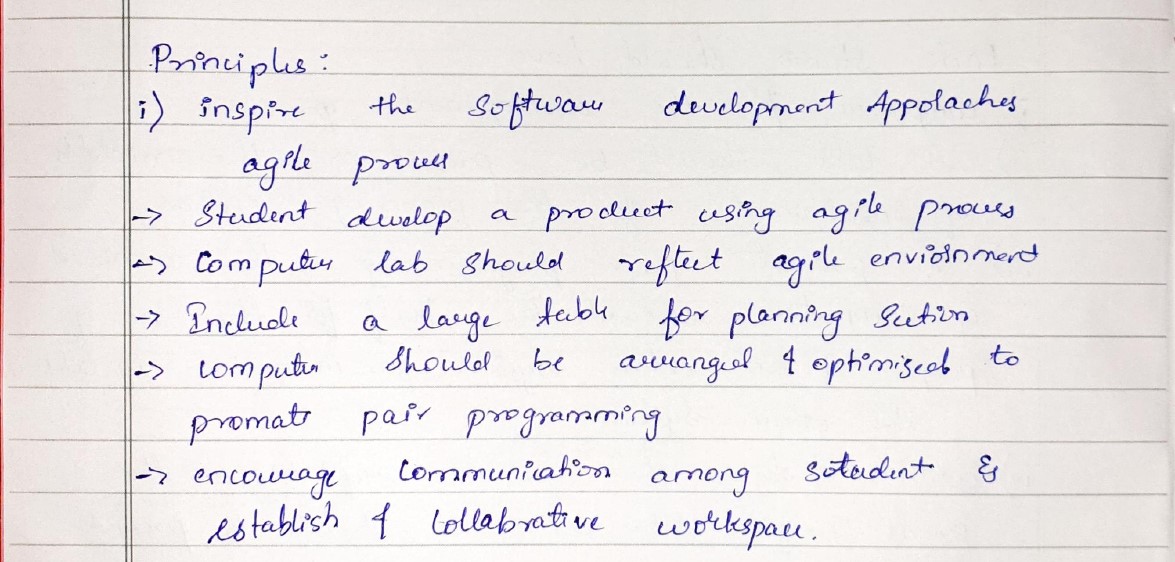 Principles :
i) inspire the Software development Appolaches
agile process
-> Student develop a product using agile process
-> Computer lab should reflect agile enviornment
-> Include a large table for planning Section
-> computer should be arranged & optimized to
promate pair programming
-> encourage communication among sotudent &
establish & Collabrative workspace.